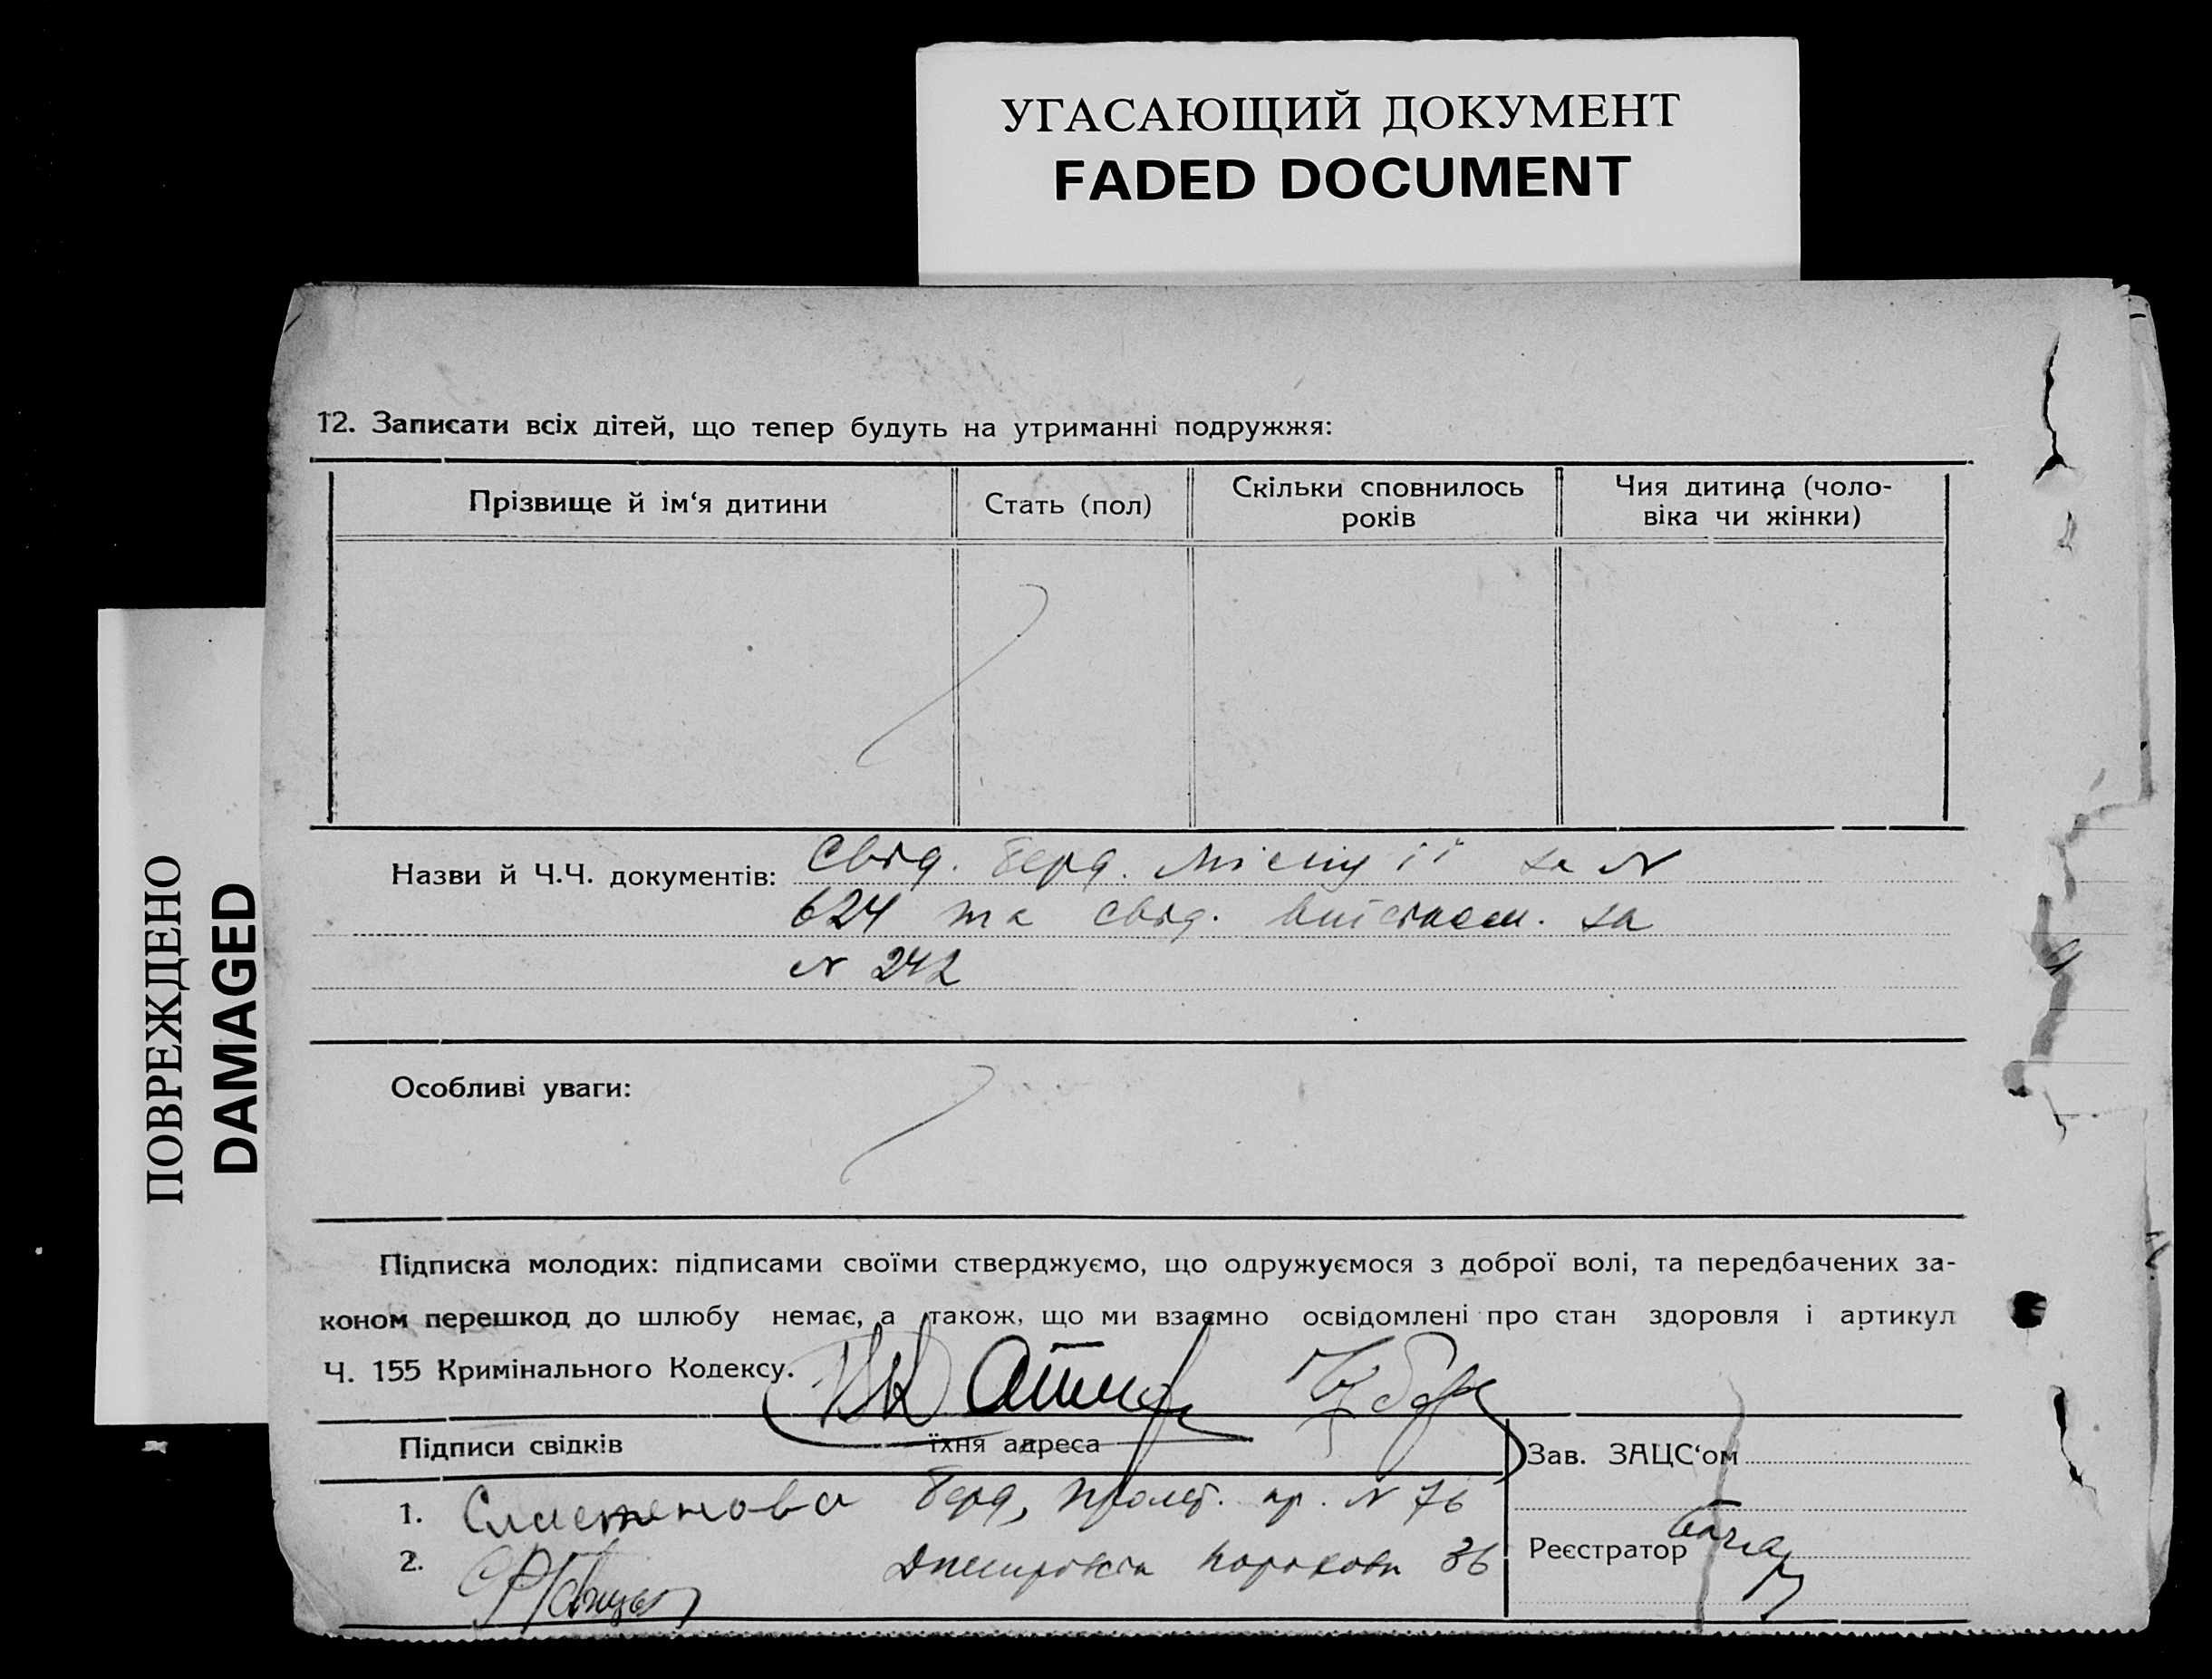 УГАСАЮЩИЙ ДОКУМЕНТ
FADED DOCUMENT
ПОВРЕЖДЕНО
DAMAGED
12. Записати всіх дітей, що тепер будуть на утриманні подружжя:
Прізвище й ім‘я дитини
Стать (пол)
Скільки сповнилось
років
Чия дитина (чоло-
віка чи жінки)
Назви й Ч.Ч. документів: Свід. Берд. за N
624 та свід. за
N 242
Особливі уваги:
Підписка молодих: підписами своїми стверджуємо, що одружуємося з доброї волі, та передбачених за-
коном перешкод до шлюбу немає, а також, що ми взаємно освідомлені про стан здоровля і артикул
Ч. 155 Кримінального Кодексу.
Підписи свідків
їхня адреса
Зав. ЗАЦС‘ом
1. Берд, Пролет. пр. N 76
2. 36
Реєстратор